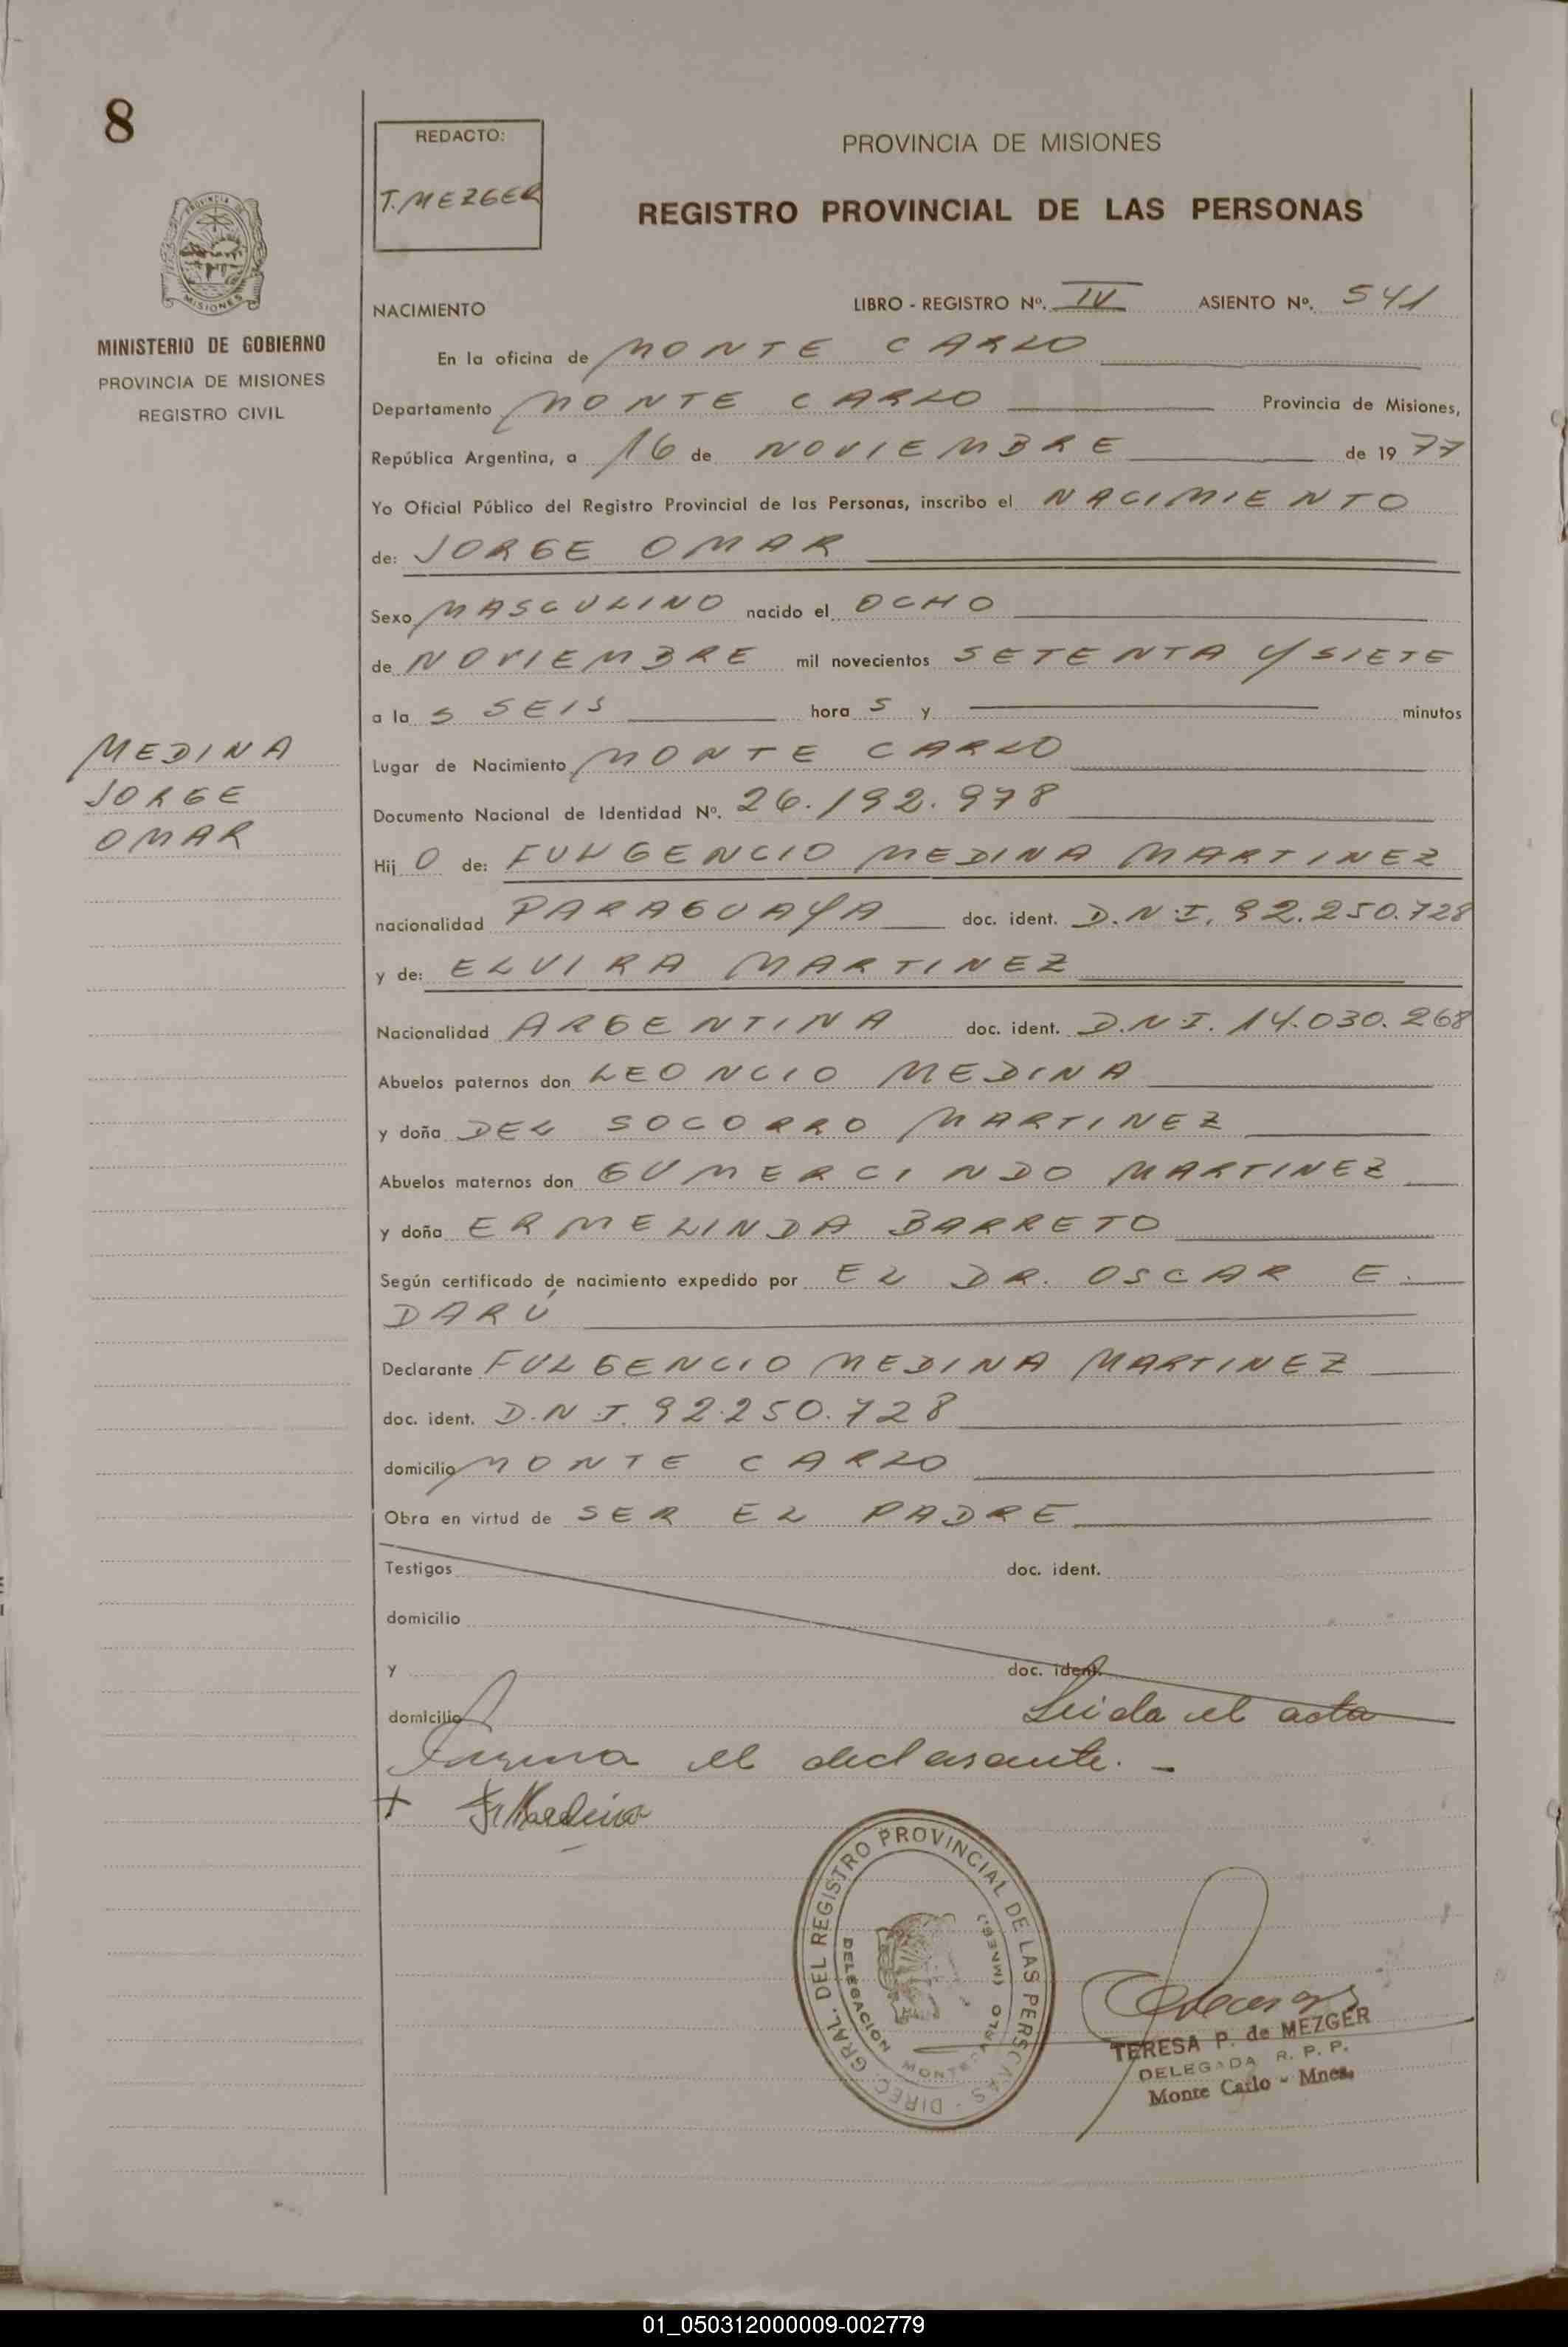 8
REDACTO:
T. MEZGER
PROVINCIA DE MISIONES
REGISTRO PROVINCIAL DE LAS PERSONAS
MISIONES
MINISTERIO DE GOBIERNO
PROVINCIA DE MISIONES
REGISTRO CIVIL
NACIMIENTO LIBRO - REGISTRO Nº. IV ASIENTO Nº. 541
En la oficina de MONTE CARLO
Departamento MONTE CARLO Provincia de Misiones,
República Argentina, a 16 de NOVIEMBRE de 19 77
Yo Oficial Público del Registro Provincial de las Personas, inscribo el NACIMIENTO
de: JORGE OMAR
Sexo MASCULINO nacido el OCHO
de NOVIEMBRE mil novecientos SETENTA Y SIETE
a la S SEIS hora S y minutos
MEDINA
JORGE
OMAR
Lugar de Nacimiento MONTE CARLO
Documento Nacional de Identidad Nº. 26.192.978
Hij O de: FULGENCIO MEDINA MARTINEZ
nacionalidad PARAGUAYA doc. ident. D.N.I. 92.250.728
y de: ELVIRA MARTINEZ
Nacionalidad ARGENTINA doc. ident. D.N.I. 14.030.268
Abuelos paternos don LEONCIO MEDINA
y doña DEL SOCORRO MARTINEZ
Abuelos maternos don GUMERCINDO MARTINEZ
y doña ERMELINDA BARRETO
Según certificado de nacimiento expedido por EL DR. OSCAR E.
DARÚ
Declarante FULGENCIO MEDINA MARTINEZ
doc. ident. D.N.I. 92.250.728
domicilio MONTE CARLO
Obra en virtud de SER EL PADRE
Testigos doc. ident.
domicilio
y doc. ident.
domicilio Leida el acta
firma el declarante. -
+ F. Medina
DIREC. GRAL. DEL REGISTRO PROVINCIAL DE LAS PERSONAS
DELEGACION MONTECARLO (MNES.)
TERESA P. de MEZGER
DELEGADA R. P. P.
Monte Carlo - Mnes.
01_050312000009-002779